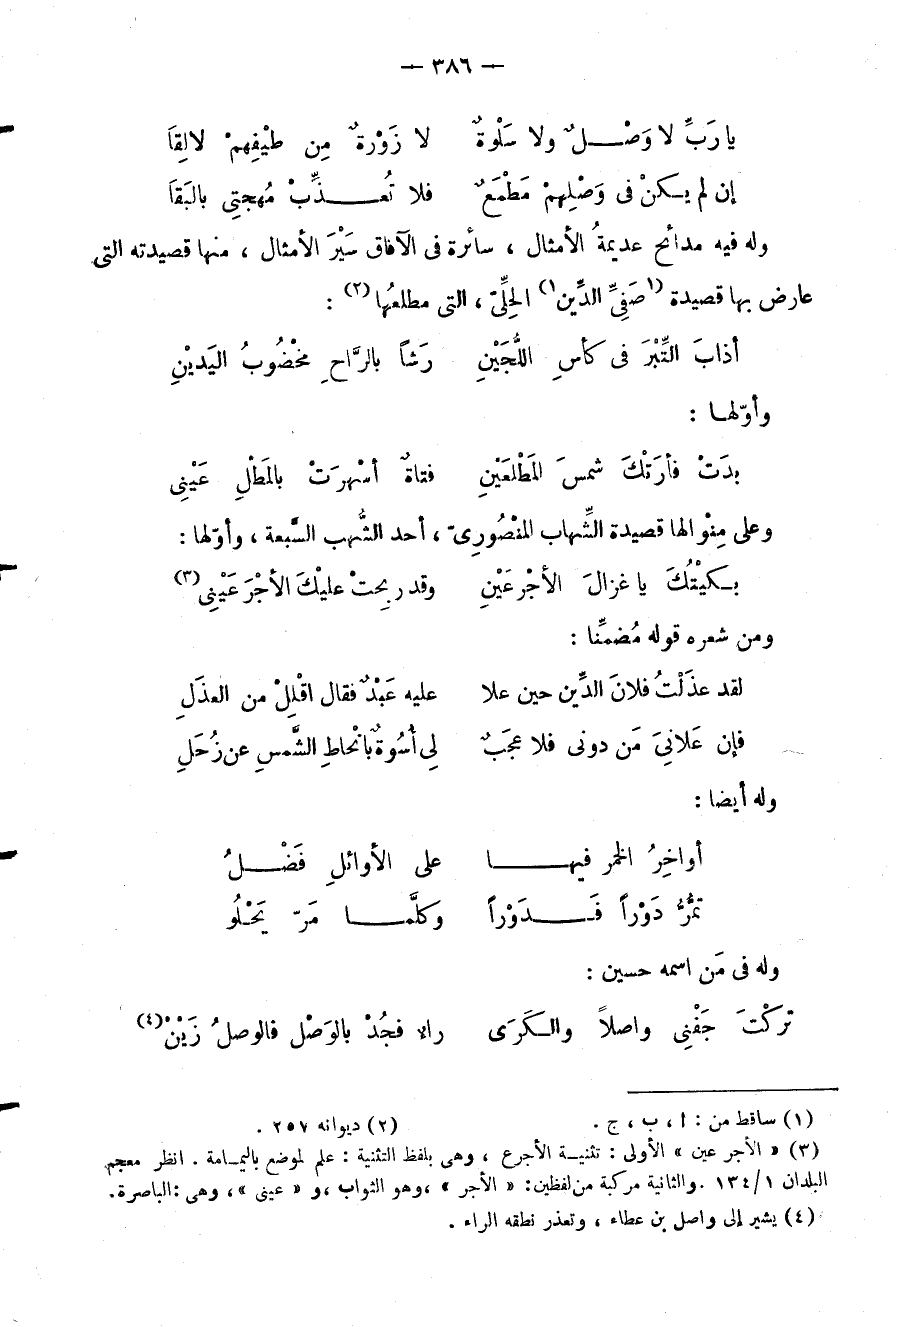 — ٣٨٦ —
يا رَبِّ لا وَصْــلٌ ولا سَلْوةٌ لا زَوْرةٌ مِن طيْفِهمْ لا لِقَا
إن لم يكنْ فى وَصْلِهمْ مَطْمَعٌ فلا تُعـــذِّبْ مُهجتِى بالبَقَا
وله فيه مدائح عديمةُ الأمثال ، سائرة فى الآفاق سَيْرَ الأمثال ، منها قصيدته التى
عارض بها قصيدة (١صَفِىِّ الدِّين١) الحِلِّىّ ، التى مطلعُها(٢) :
أذابَ التِّبْرَ فى كأسِ اللُّجَيْنِ رَشاً بالرَّاحِ مخْضُوبُ اليَديْنِ
وأوّلهـا :
بدَتْ فأرَتْكَ شمسَ المَطْلعَيْنِ فتاةٌ أسْهرَتْ بالمَطْلِ عَيْنِى
وعلى مِنْوالها قصيدة الشِّهاب المنْصُورِىّ ، أحد الشُّهب السَّبعة ، وأوّلها :
بكيْتُكَ يا غزالَ الأجْرعَيْنِ وقد ربِحتْ عليْكَ الأجْرَ عَيْنِى(٣)
ومن شعره قوله مُضمِّنا :
لقد عذَلْتُ فلانَ الدِّين حين علا عليه عَبْدٌ فقال اقْلِلْ من العذَلِ
فإن عَلانِىَ مَن دونى فلا عجَبٌ لِى أُسْوةٌ بانْحاطِ الشَّمسِ عن زُحَلِ
وله أيضا :
أواخِرُ الخمْر فيهــا على الأوائلِ فَضْـــلُ
تمُرُّ دَوْراً فَـــدَوْراً وَكلَّمــا مَرّ يَحْـلُو
وله فى مَن اسمه حسين :
تركْتَ جَفْنِى واصلاً والكَرَى راء فجُدْ بالوَصْل فالوصلُ زَيْنْ(٤)
(١) ساقط من : ا ، ب ، ج . (٢) ديوانه ٢٥٧ .
(٣) « الأجر عين » الأولى : تثنيـة الأجرع ، وهى بلفظ التثنية : علم لموضع باليمـامة . انظر معجم
البلدان ١٣٤/١ .والثانية مركبة من لفظين: « الأجر » ،وهو الثواب ،و « عينى »، وهى :الباصرة.
(٤) يشير إلى واصل بن عطاء ، وتعذر نطقه الراء .